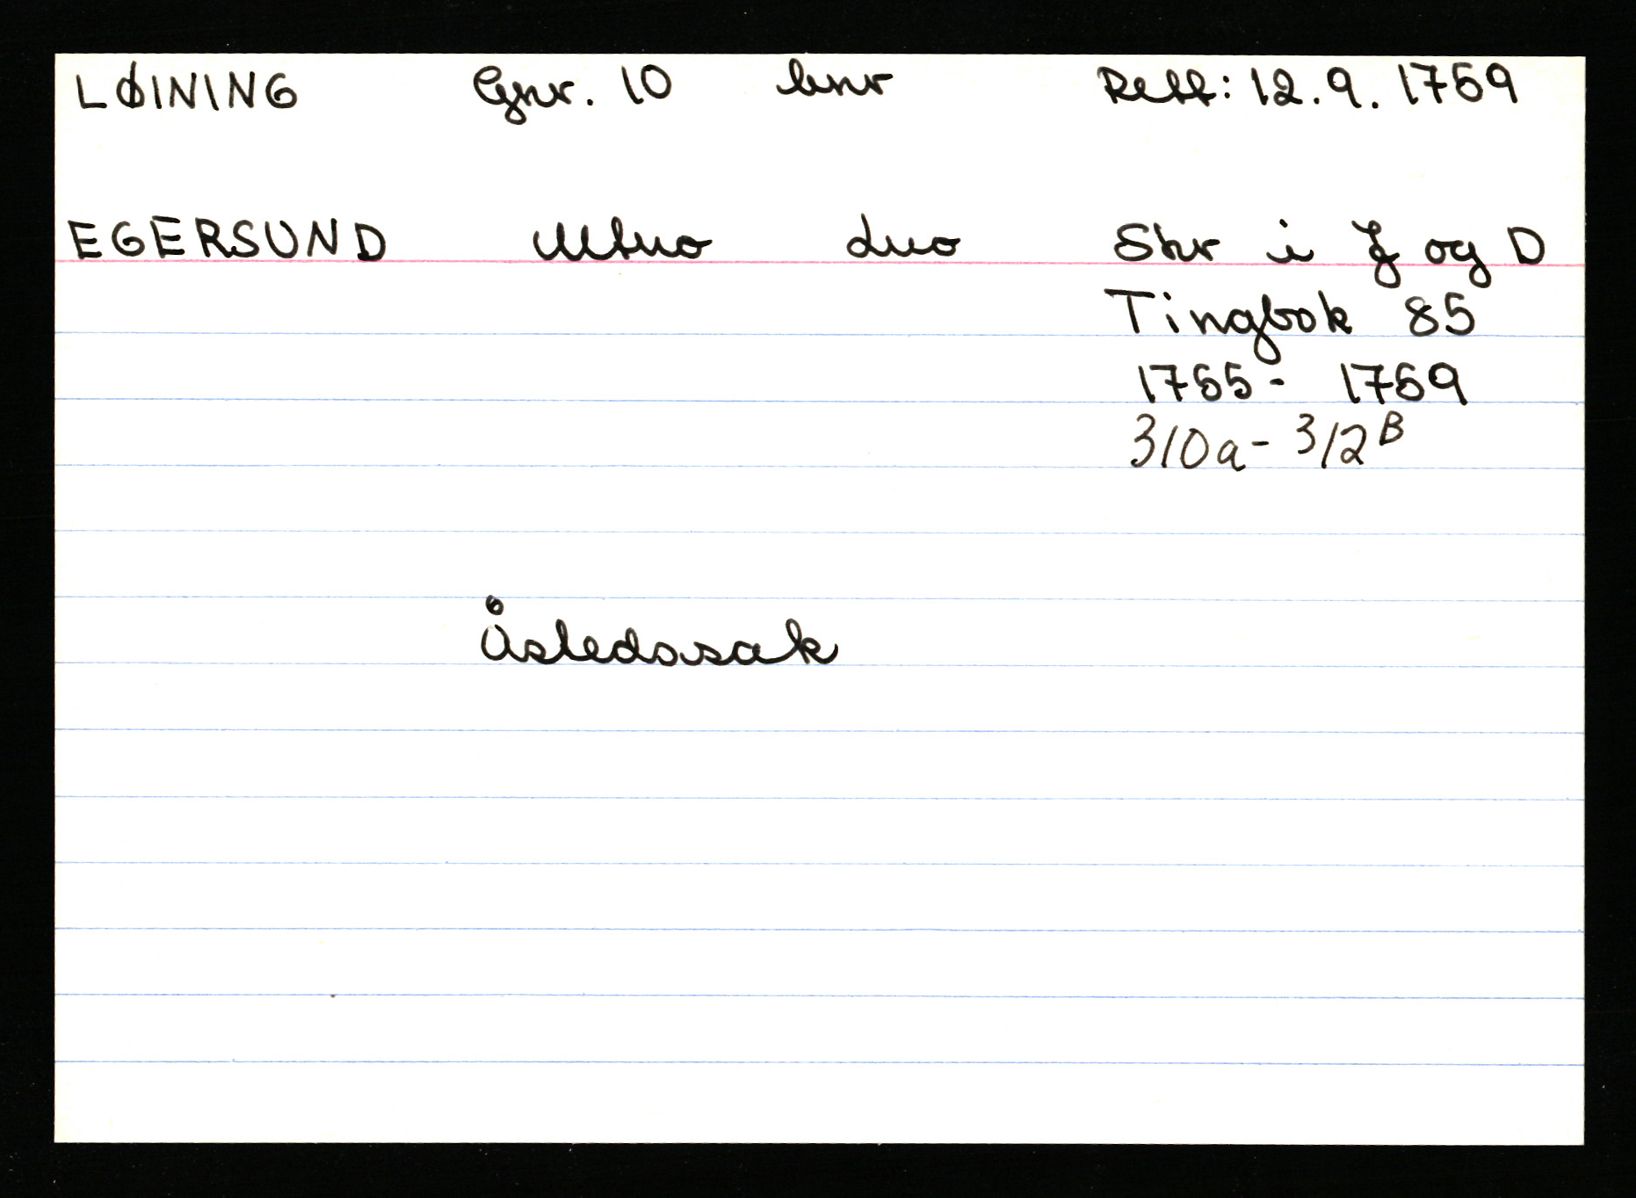 LØINING Gnr. 10 bnr Reff: 12.9. 1759
EGERSUND Mtno Lno Skr i J og D
Tingbok 85
1755 - 1759
310a - 312B
Åstedssak